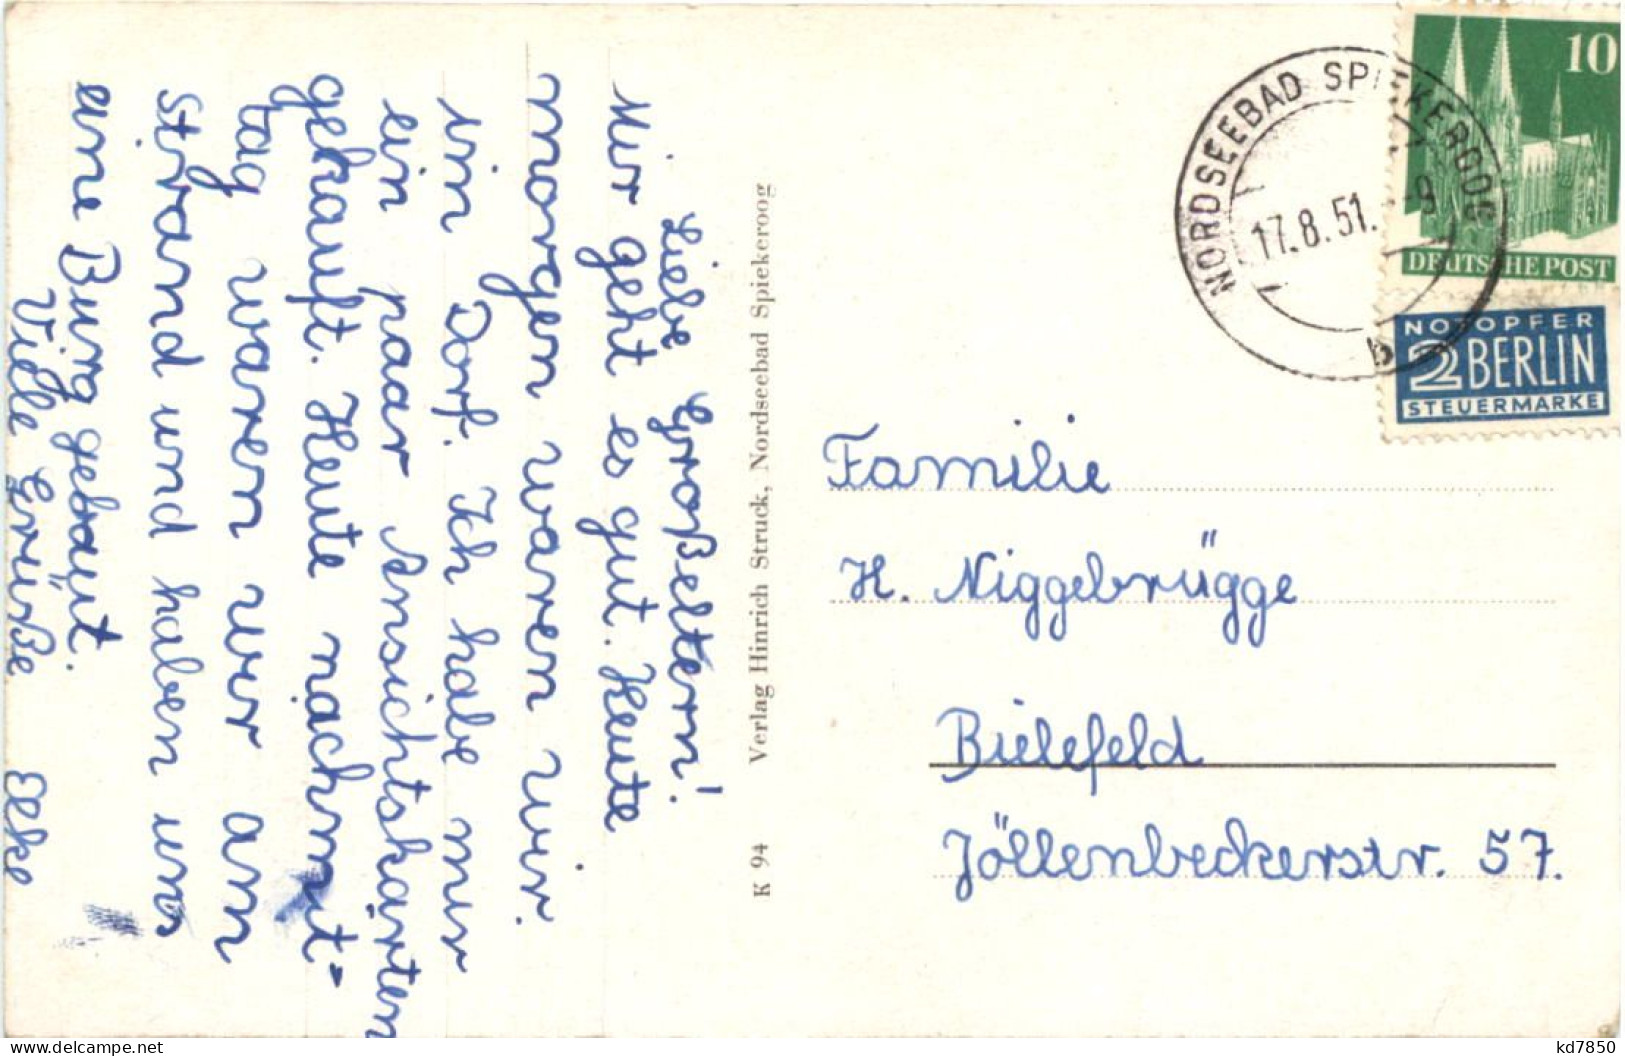 Liebe Großeltern!
Mir geht es gut. Heute
morgen waren wir
im Dorf. Ich habe mir
ein paar Ansichtskarten
gekauft. Heute nachmit-
tag waren wir am
Strand und haben uns
eine Burg gebaut.
Viele Grüße Elke
K 94 Verlag Hinrich Struck, Nordseebad Spiekeroog
NORDSEEBAD SPIEKEROOG
17.8.51. -9
b
10
DEUTSCHE POST
NOTOPFER
2 BERLIN
STEUERMARKE
Familie
H. Niggebrügge
Bielefeld
Jöllenbeckerstr. 57.
delcampe.net
kd7850